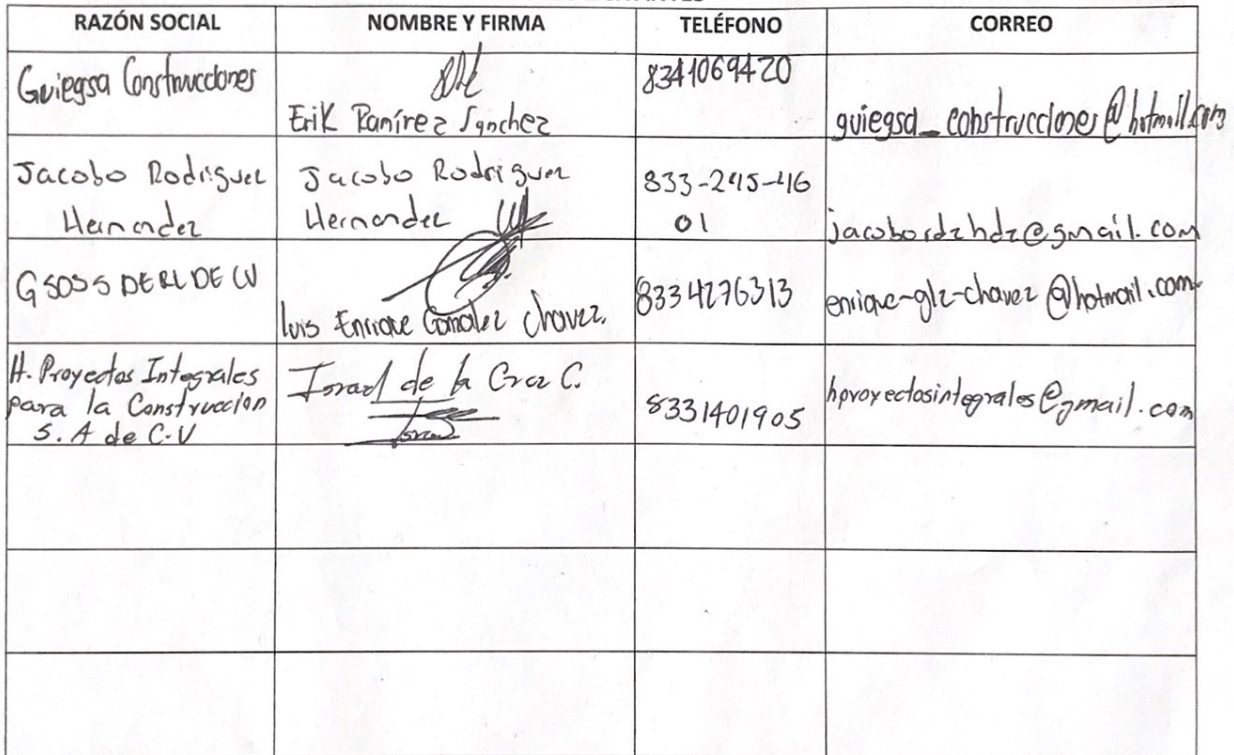 RAZÓN SOCIAL NOMBRE Y FIRMA TELÉFONO CORREO
Guiegsa Construcciones
Erik Ramírez Sánchez
8341069420
guiegsa_construcciones@hotmail.com
Jacobo Rodriguez
Hernandez
Jacobo Rodriguez
Hernandez
833-245-46
01
jacobordzhdz@gmail.com
GSOSS DE RL DE CV
luis Enrique Gonzalez chavez.
8334276313
enrique-glz-chavez@hotmail.com
H. Proyectos Integrales
para la Construccion
S. A de C.V
Israel de la Cruz C.
8331401905
hproyectosintegrales@gmail.com